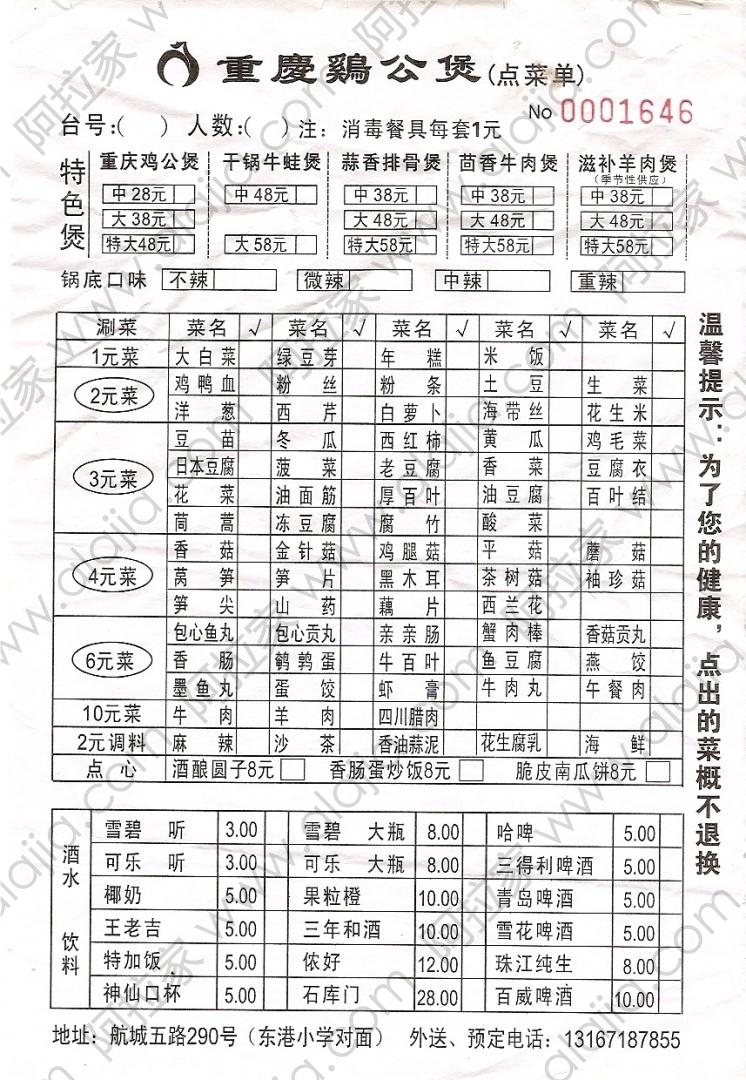 重慶鷄公煲(点菜单)
台号:(    )  人数:(    )  注: 消毒餐具每套1元  No 0001646
特色煲
重庆鸡公煲 干锅牛蛙煲 蒜香排骨煲 茴香牛肉煲 滋补羊肉煲
(季节性供应)
中28元 中48元 中38元 中38元 中38元
大38元 大48元 大48元 大48元
特大48元 大58元 特大58元 特大58元 特大58元
锅底口味 不辣 微辣 中辣 重辣
涮菜 菜名 √ 菜名 √ 菜名 √ 菜名 √ 菜名 √
1元菜 大白菜 绿豆芽 年糕 米饭
2元菜 鸡鸭血 粉丝 粉条 土豆 生菜
洋葱 西芹 白萝卜 海带丝 花生米
3元菜 豆苗 冬瓜 西红柿 黄瓜 鸡毛菜
日本豆腐 菠菜 老豆腐 香菜 豆腐衣
花菜 油面筋 厚百叶 油豆腐 百叶结
茼蒿 冻豆腐 腐竹 酸菜
4元菜 香菇 金针菇 鸡腿菇 平菇 蘑菇
莴笋 笋片 黑木耳 茶树菇 袖珍菇
笋尖 山药 藕片 西兰花
6元菜 包心鱼丸 包心贡丸 亲亲肠 蟹肉棒 香菇贡丸
香肠 鹌鹑蛋 牛百叶 鱼豆腐 燕饺
墨鱼丸 蛋饺 虾膏 牛肉丸 午餐肉
10元菜 牛肉 羊肉 四川腊肉
2元调料 麻辣 沙茶 香油蒜泥 花生腐乳 海鲜
点心 酒酿圆子8元 香肠蛋炒饭8元 脆皮南瓜饼8元
温馨提示:：为了您的健康，点出的菜概不退换
酒水 饮料
雪碧 听 3.00 雪碧 大瓶 8.00 哈啤 5.00
可乐 听 3.00 可乐 大瓶 8.00 三得利啤酒 5.00
椰奶 5.00 果粒橙 10.00 青岛啤酒 5.00
王老吉 5.00 三年和酒 10.00 雪花啤酒 5.00
特加饭 5.00 侬好 12.00 珠江纯生 8.00
神仙口杯 5.00 石库门 28.00 百威啤酒 10.00
地址: 航城五路290号（东港小学对面） 外送、预定电话: 13167187855
阿拉家 www.alajia.com